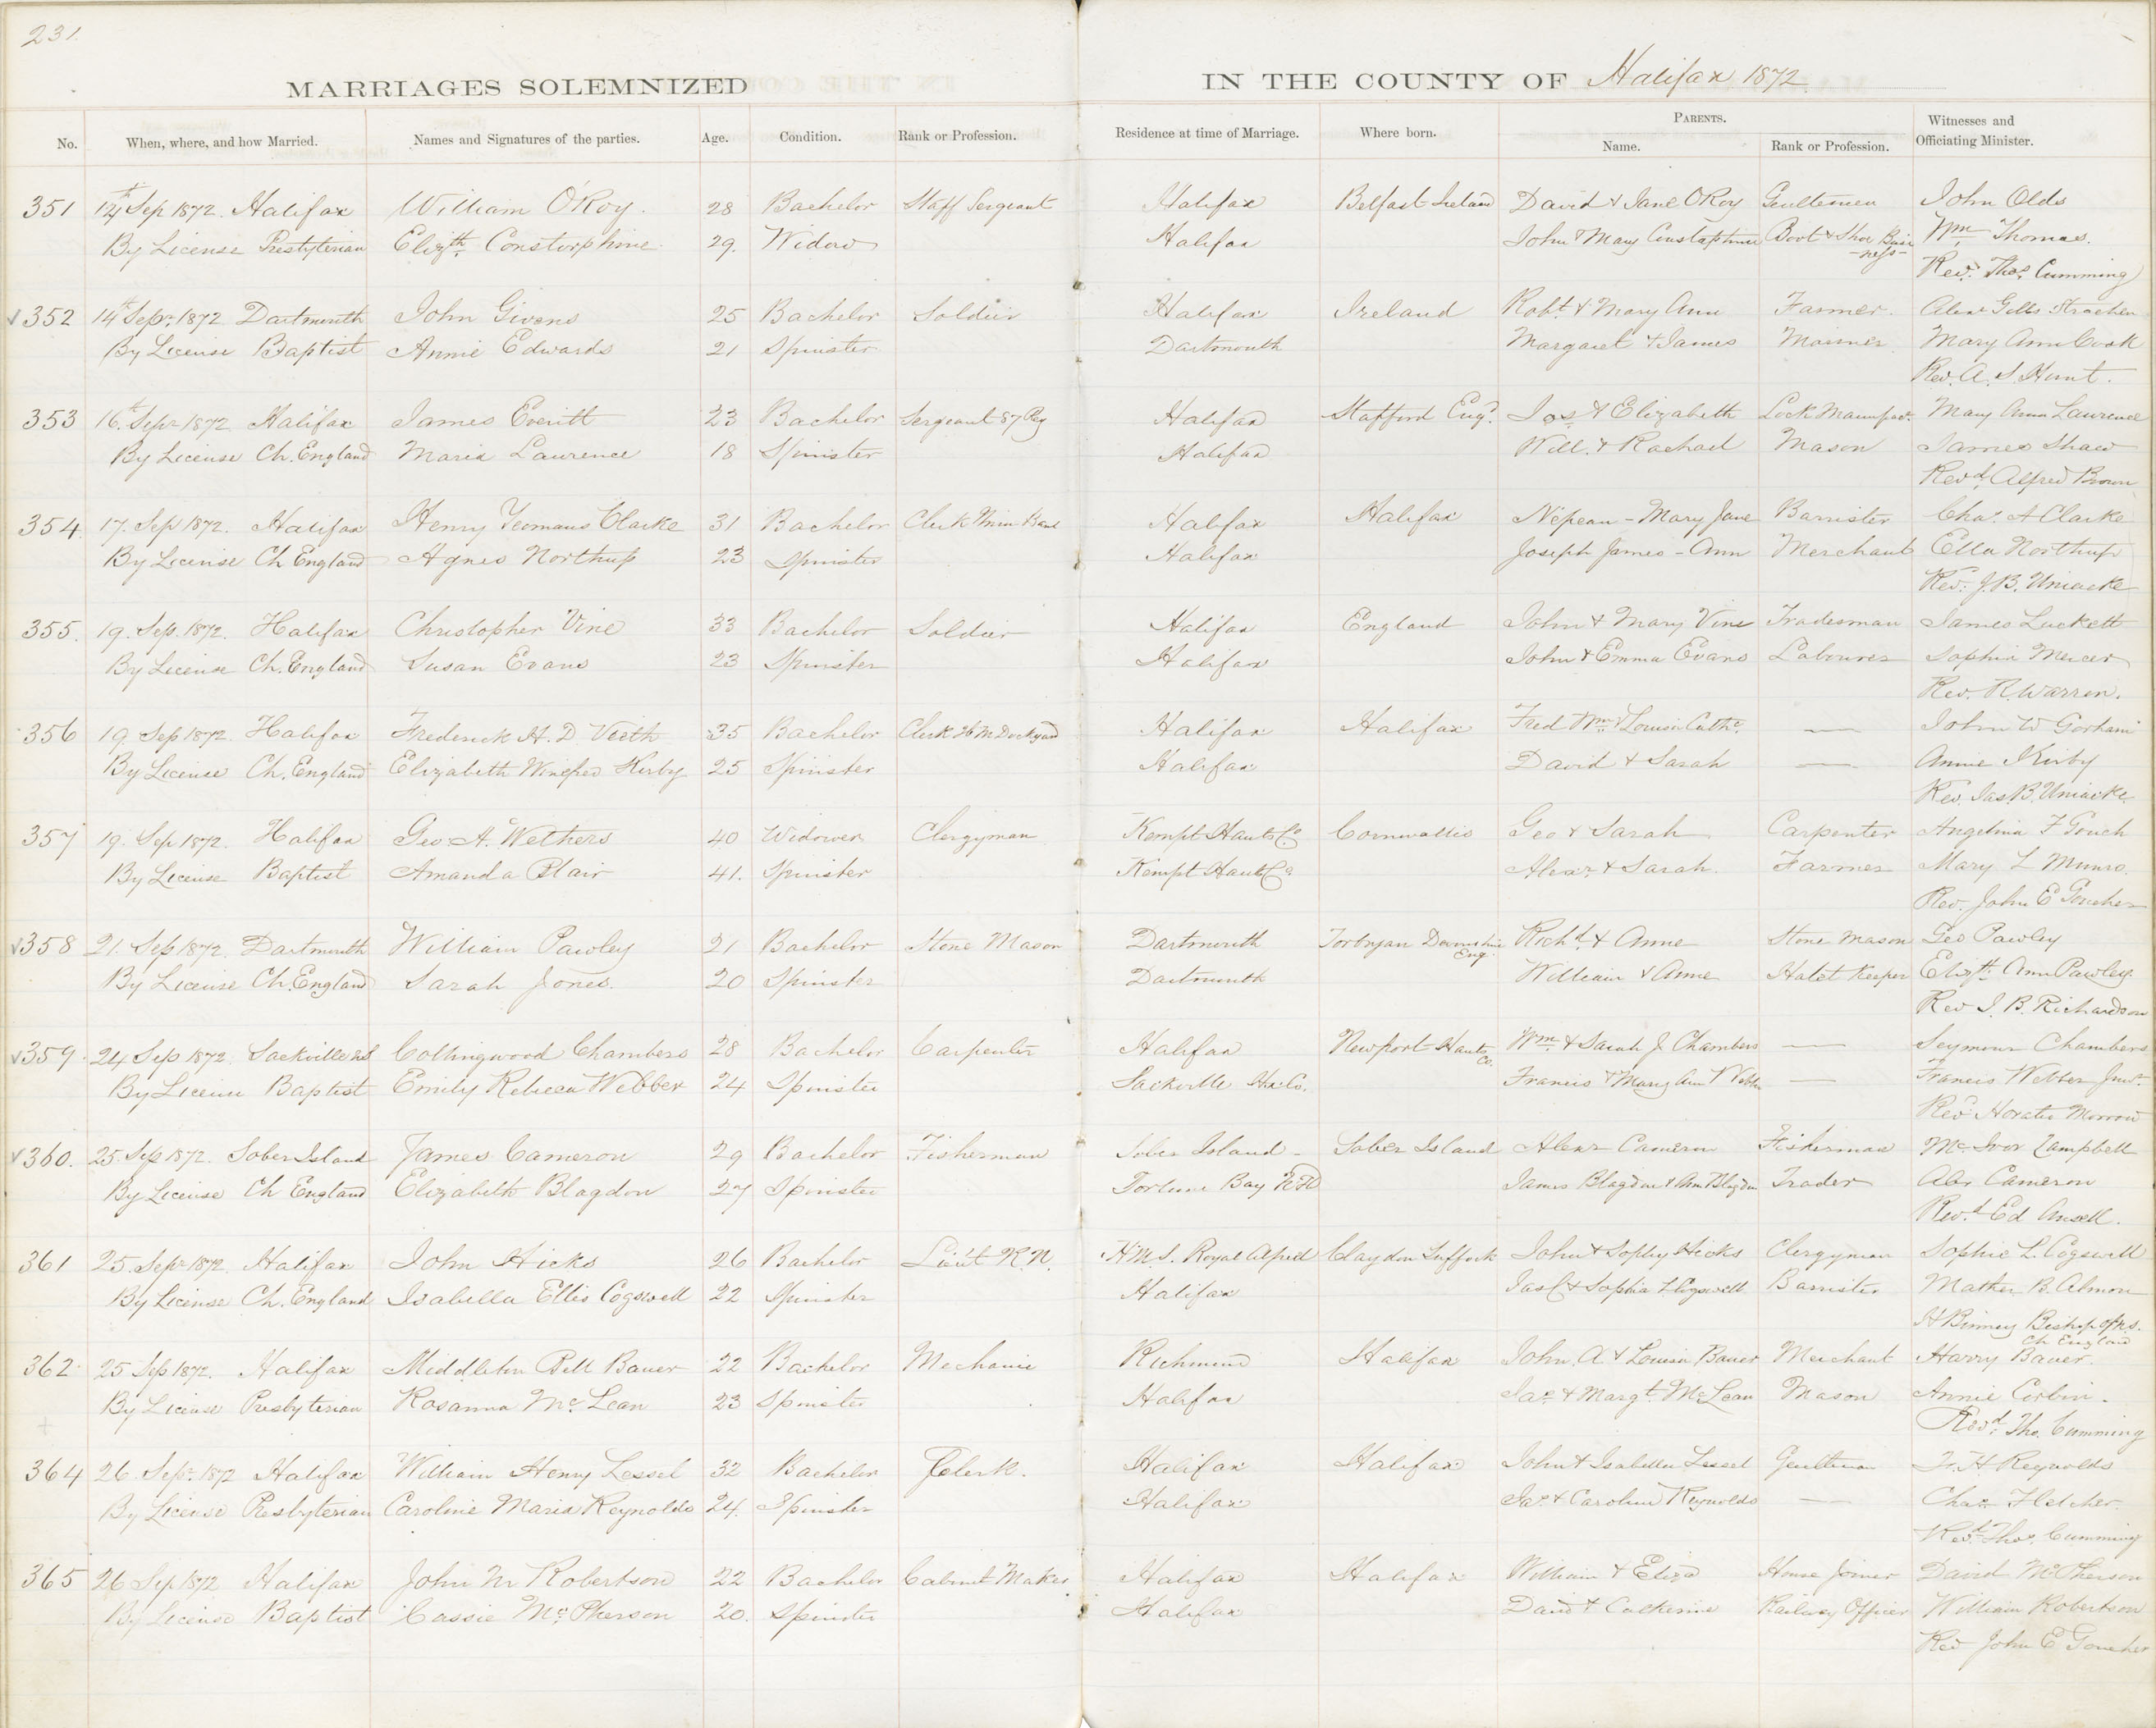 231
MARRIAGES SOLEMNIZED IN THE COUNTY OF Halifax 1872
No. When, where, and how Married. Names and Signatures of the parties. Age. Condition. Rank or Profession. Residence at time of Marriage. Where born. PARENTS. Name. Rank or Profession. Witnesses and Officiating Minister.
351 14th Sep 1872 Halifax William O'Roy. 28 Bachelor Staff Sergeant Halifax Belfast Ireland David & Jane O'Roy Gentlemen John Olds
By License Presbyterian Elizth. Constorphine 29. Widow Halifax John & Mary Boot & Shoe Busi-ness- Wm. Thomas.
Revd. Thos. Cumming
352 14th Sepr. 1872 Dartmouth John Givens 25 Bachelor Soldier Halifax Ireland Robt. & Mary Ann Farmer. Alexr Gibbs Strachen
By License Baptist Annie Edwards 21 Spinster Dartmouth Margaret & James Mariner Mary Ann Cook
Rev. A. S. Hunt.
353 16th Sepr 1872 Halifax James Everitt 23 Bachelor Sergeant 87 Reg Halifax Stafford Engd. Jos & Elizabeth Lock Manufact. Mary Ann Laurence
By License Ch. England Maria Laurence 18 Spinster Halifax Will. & Rachael Mason James Shaw
Revd. Alfred Brown
354 17. Sep 1872. Halifax Henry Yeomans Clarke 31 Bachelor Clerk Halifax Halifax Nepean - Mary Jane Barrister Chas. A Clarke
By License Ch England Agnes Northup 23 Spinster Halifax Joseph James - Ann Merchant Ella Northup
Rev. J. B. Uniacke
355. 19. Sep. 1872. Halifax Christopher Vine 33 Bachelor Soldier Halifax England John & Mary Vine Tradesman James Luckett
By License Ch. England Susan Evans 23 Spinster Halifax John & Emma Evans Labourer Sophia Mercer
Rev. R. Warren.
356 19 Sep 1872. Halifax Frederick H. D. Vieth 35 Bachelor Clerk H M Dockyard Halifax Halifax Fred Wm. & Louisa Cathe. — John W Gorham
By License Ch. England Elizabeth Winefred Kirby 25 Spinster Halifax David & Sarah — Annie Kirby
Rev. Jas. B. Uniacke
357 19. Sep 1872. Halifax Geo. A. Wethers 40 Widower Clergyman Kempt Hants Co Cornwallis Geo & Sarah Carpenter Angelina F Gouch
By License Baptist Amanda Blair 41. Spinster Kempt Hants Co Alexr. & Sarah. Farmer Mary L Munro.
Rev. John E Goucher
358 21. Sep 1872. Dartmouth William Pawley 21 Bachelor Stone Mason Dartmouth Torbryan Devonshire Eng. Richd. & Anne Stone Mason Geo Pawley
By License Ch. England Sarah Jones. 20 Spinster Dartmouth William & Anne Hotel Keeper Elizth. Ann Pawley.
Rev J. B. Richardson
359. 24 Sep 1872. Sackville Collingwood Chambers 28 Bachelor Carpenter Halifax Newport Hants Co. Wm. & Sarah J. Chambers — Seymour Chambers
By License Baptist Emily Rebecca Webber 24 Spinster Sackville Hx. Co. Francis & Mary Ann Webber — Francis Webber Junr.
Revd Horatio Morrow
360. 25 Sep 1872. Sober Island James Cameron 29 Bachelor Fisherman Sober Island - Sober Island Alexr Cameron Fisherman Mc. Ivor Campbell
By License Ch England Elizabeth Blagdon 27 Spinster Fortune Bay Nfld James Blagdon & Ann Blagdon Trader Alex Cameron
Revd. Ed Ansell.
361 25. Sepr 1872. Halifax John Hicks 26 Bachelor Lieut R. N. H.M.S. Royal Alfred Claydon Suffock John & Sophy Hicks Clergyman Sophie L. Cogswell
By License Ch. England Isabella Ellis Cogswell 22 Spinster Halifax Jas C & Sophia L Cogswell Barrister Mather B. Almon
H Binney Bishop of NS.
Ch England
362 25 Sep 1872. Halifax Middleton Bell Bauer 22 Bachelor Mechanic Richmond Halifax John. A. & Louisa Bauer Merchant Harry Bauer.
By License Presbyterian Rosanna Mc. Lean 23 Spinster Halifax Jas. & Margt. McLean Mason Annie Corbin.
Revd. Tho. Cumming
364 26. Sepr. 1872 Halifax William Henry Lessel 32 Bachelor Clerk. Halifax Halifax John & Isabella Lessel Gentleman F. H. Reynolds
By License Presbyterian Caroline Maria Reynolds 24. Spinster Halifax Jas. & Caroline Reynolds — Chas. Fletcher.
Revd. Thos. Cumming
365 26 Sep 1872 Halifax John M Robertson 22 Bachelor Cabinet Maker Halifax Halifax William & Eliza House Joiner David McPherson
By License Baptist Cassie Mc. Pherson 20. Spinster Halifax David & Catherine Railway Officer William Robertson
Rev John E Goucher